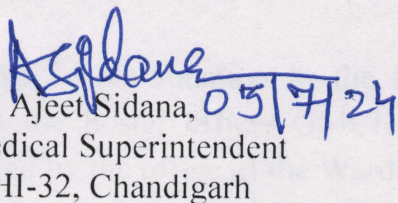 Asidana
Ajeet Sidana, 05/7/24
edical Superintendent
HI-32, Chandigarh